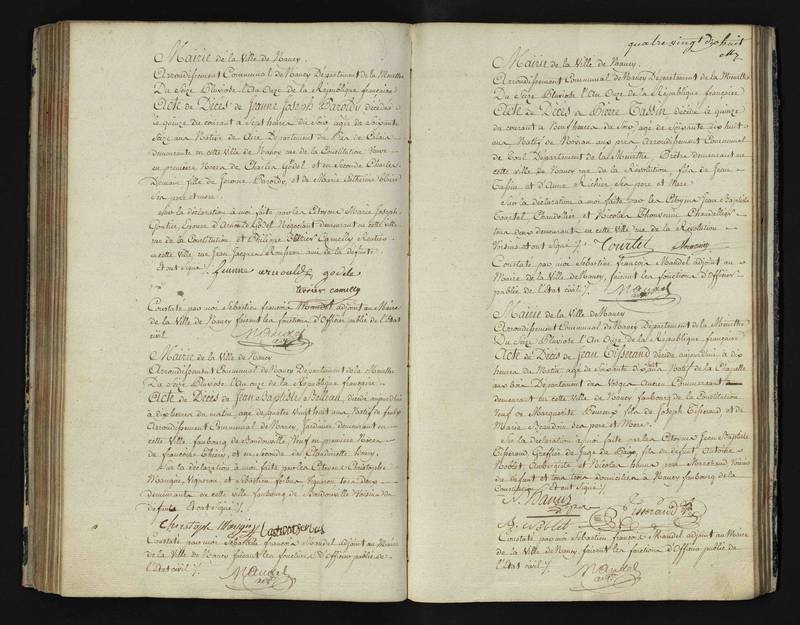 Mairie de la Ville de Nancy.
Arrondissement Communal de Nancy Département de la Meurthe
Du Seize Pluviose l'An Onze de la République française
Acte de Décès de Jeanne Joseph Paroidy décédée
le quinze du courant à Sept heures du Soir, agée de Soixante
Seize ans Native de Département du Pas de Calais
demeurante en cette ville de Nancy rue de la Constitution Veuve
en première Noces de Charles Godel et en Seconde Charles
fille de Paroidy, et de Marie Catherine
Ses père et mere.
Sur la déclaration à moi faite par les Citoyens Marie Joseph
Godel Négociant demeurant en cette ville
rue de la Constitution et Philippe Camelly Rentier
en cette ville, rue Jean Jacques Rousseau ami de la défunte.
et ont signé femme arnould godele
terrier camelly
Constaté par moi Sébastien françois Mandel adjoint au Maire
de la Ville de Nancy faisant les fonctions d'Officier public de l'Etat
civil. Mandel
adjt
Mairie de la Ville de Nancy
Arrondissement Communal de Nancy Département de la Meurthe
Du Seize Pluviose l'An onze de la République française
Acte de Décès de Jean Baptiste Belleau, décédé aujourd'hui
à dix heures du matin, agé de quatre Vingt huit ans Natif de
Arrondissement Communal de Nancy, Jardinier demeurant en
cette Ville, faubourg de Boudonville, Veuf en première Noces
de françoise et en Seconde de Claudinette
Sur la déclaration à moi faite par les Citoyens Christophe
Mougin, Vigneron, et Sébastien Vigneron tous deux
demeurants en cette ville faubourg de Boudonville Voisins du
défunt et ont signé.
Christoph Mougin
Constaté par moi Sébastien françois Mandel adjoint au Maire
de la Ville de Nancy faisant les fonctions d'Officier public de
l'Etat civil. Mandel
adjt
quatre vingt dix huit
Mairie de la Ville de Nancy.
Arrondissement Communal de Nancy Département de la Meurthe
Du Seize Pluviose l'An Onze de la République française
Acte de Décès de Pierre Tassin décédé le quinze
du courant à Neuf heures du Soir, agé de Soixante dix huit
ans Natif de Arrondissement Communal
de Toul Département de la Meurthe Prêtre demeurant en
cette ville de Nancy rue de la Révolution, fils de Jean
Tassin et d'Anne Richier Ses père et Mere
Sur la déclaration à moi faite par les Citoyens Jean Baptiste
Tourtel, Chandelier et Nicolas Thouvenin Chandellier
tous deux demeurant en cette ville rue de la Révolution
Voisins et ont signé. Tourtel Thouvenin
Constaté par moi Sébastien françois Mandel adjoint au
Maire de la Ville de Nancy, faisant les fonctions d'Officier
public de l'Etat civil. Mandel
adjt
Mairie de la Ville de Nancy
Arrondissement Communal de Nancy Département de la Meurthe
Du Seize Pluviose l'An Onze de la République française
Acte de Décès de Jean Tisserand décédé aujourd'hui à dix
heures du Matin, agé de Soixante dix ans Natif de la Chapelle
aux bois Département des Vosges ancien Couverturier
demeurant en cette Ville de Nancy faubourg de la Constitution
Veuf de Marguerite fils de Joseph Tisserand et de
Maria Baudoin Ses père et Mere.
Sur la déclaration à moi faite par les Citoyens Jean Baptiste
Tisserand, Greffier du Juge de Paix, fils du défunt, Antoine
Noblet Aubergiste et Nicolas hanus père Marechand Voisins
du défunt et tous trois domiciliés à Nancy faubourg de la
Constitution et ont signé.
N. hanus
Tisserand fils
A. Noblet
Constaté par moi Sébastien françois Mandel adjoint au Maire
de la Ville de Nancy, faisant les fonctions d'Officier public de
l'Etat civil. Mandel
adjt